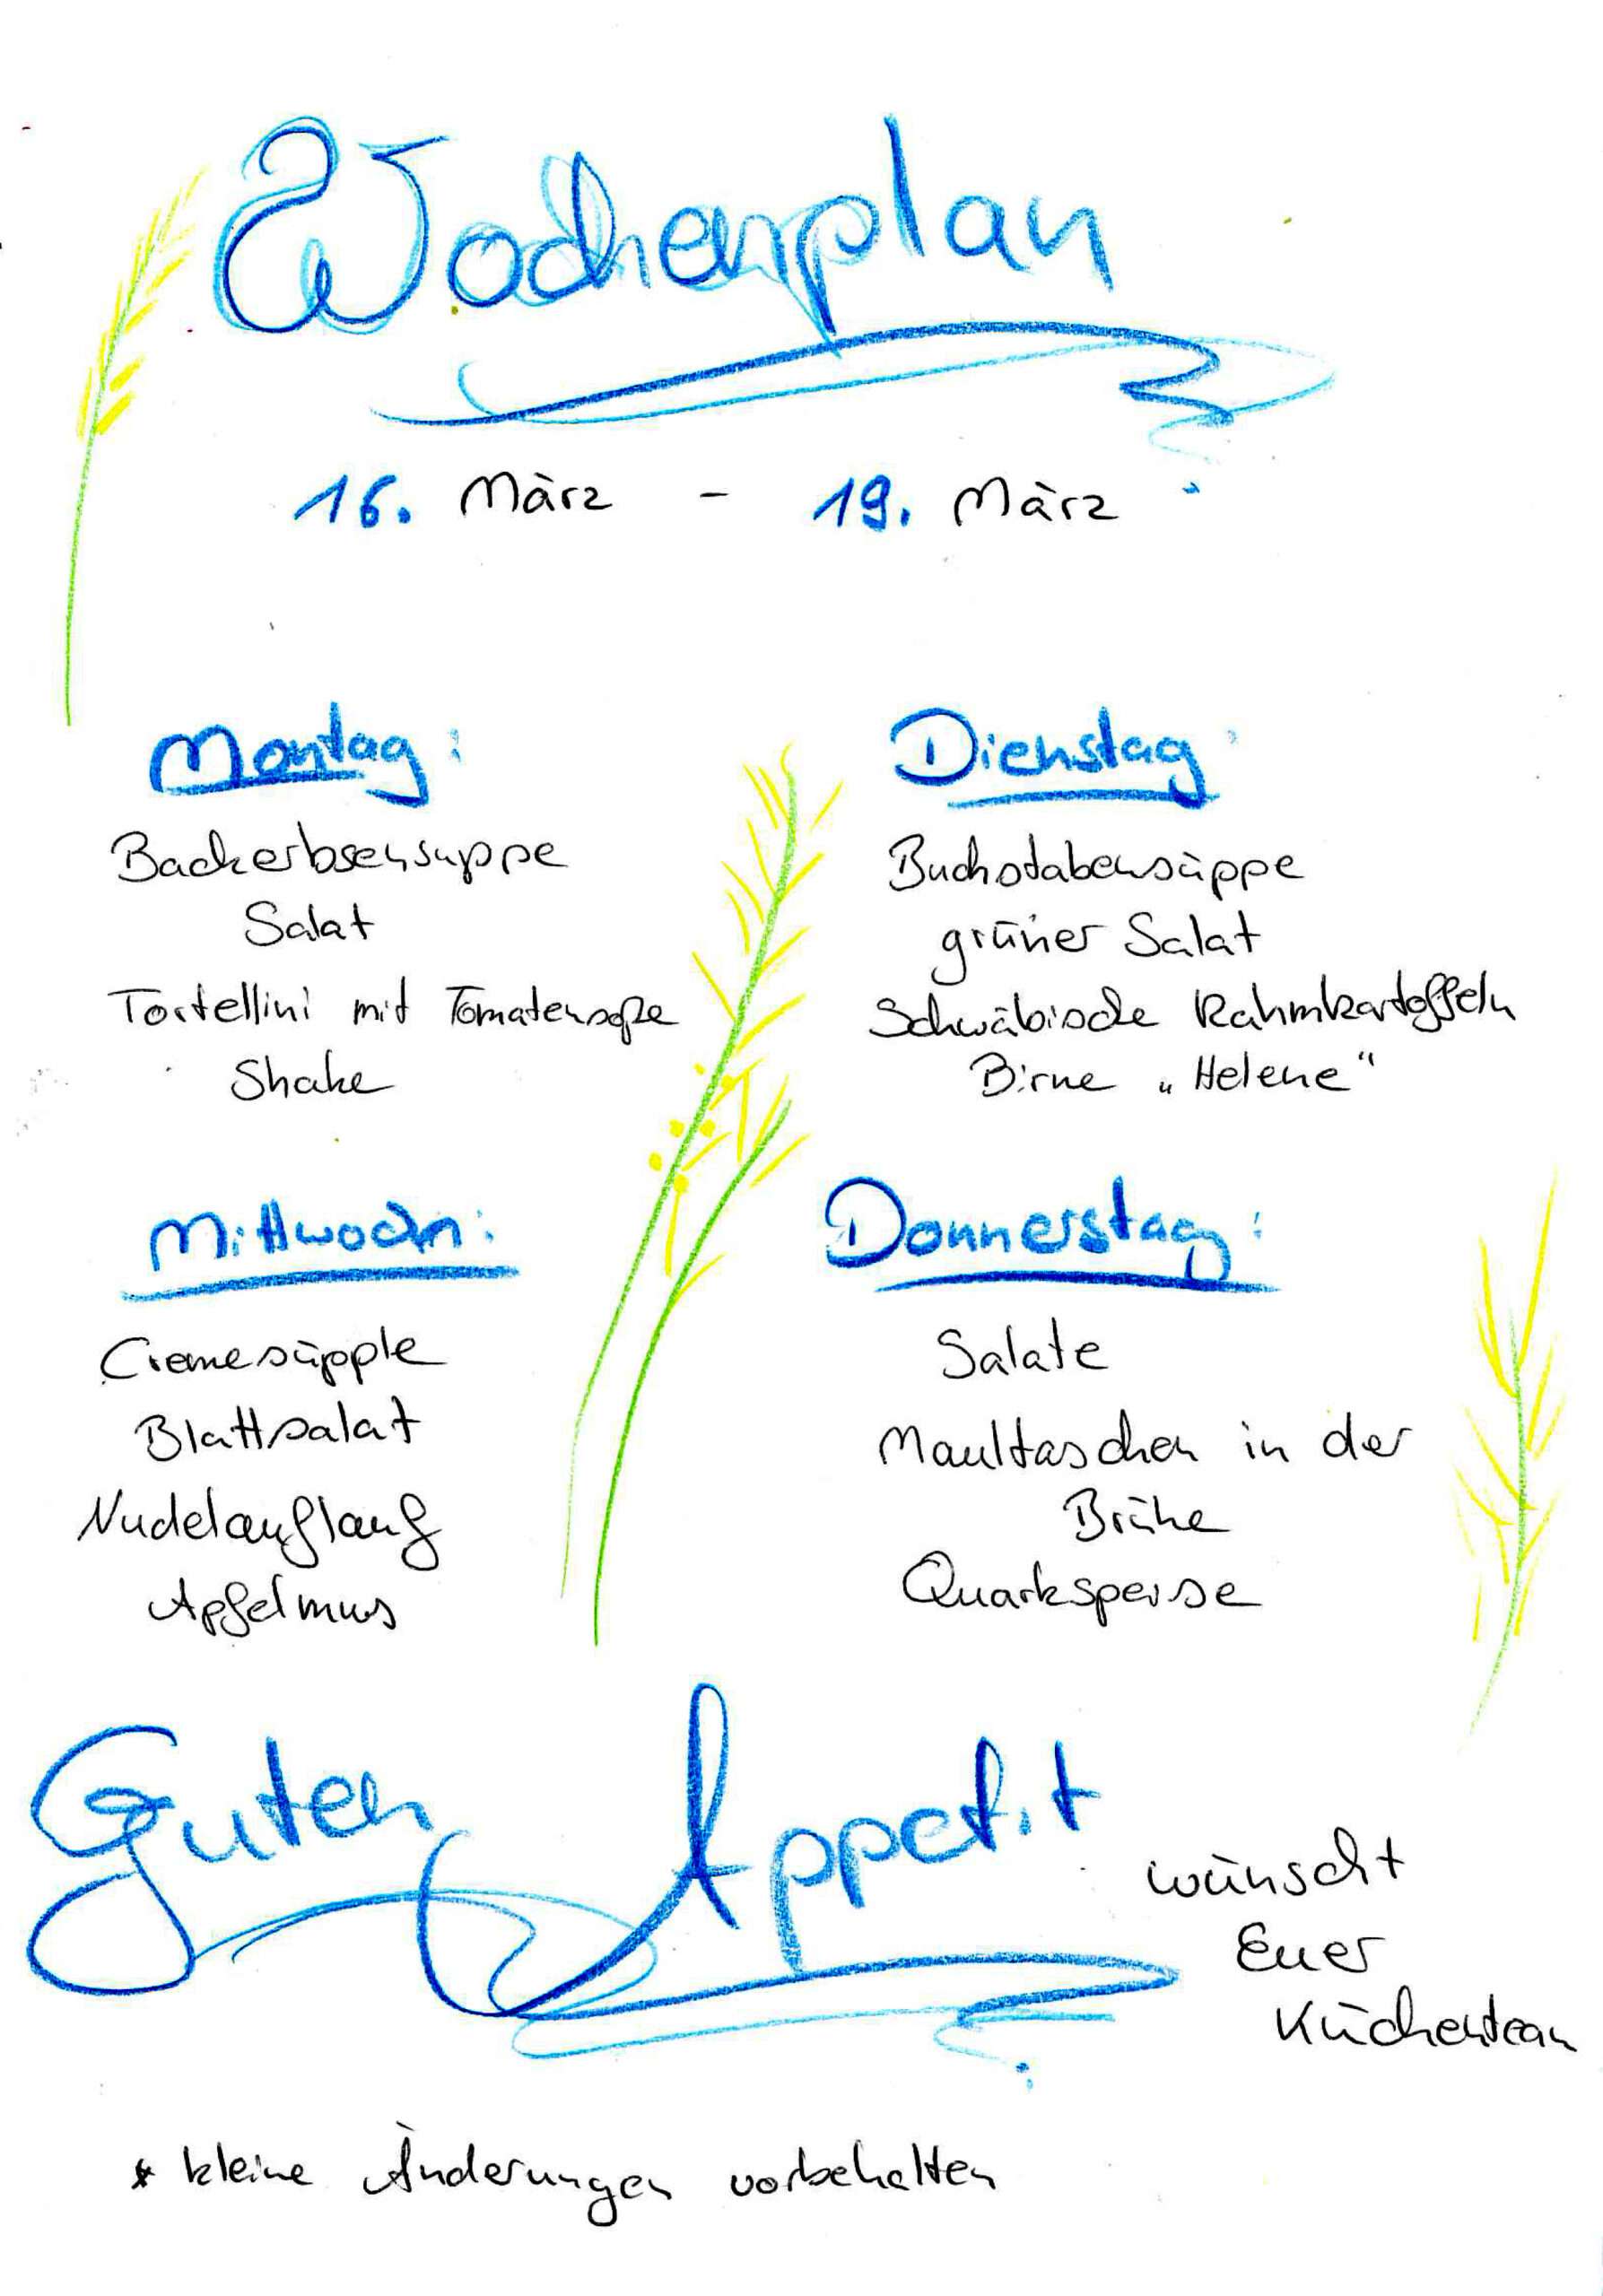 Wochenplan
16. März - 19. März
Montag:
Backerbsensuppe
Salat
Tortellini mit Tomatensoße
Shake
Dienstag:
Buchstabensüppe
grüner Salat
Schwäbische Rahmkartoffeln
Birne „Helene“
Mittwoch:
Cremesüpple
Blattsalat
Nudelauflauf
Apfelmus
Donnerstag:
Salate
Maultaschen in der
Brühe
Quarkspeise
Guten Appetit
wünscht
Euer
Küchenteam
* kleine Änderungen vorbehalten